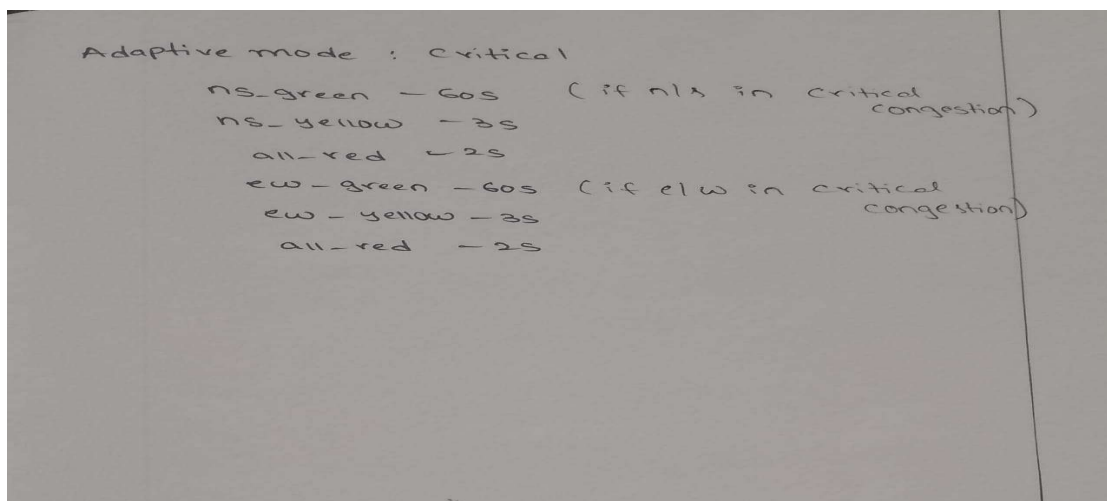 Adaptive mode : Critical
ns_green - 60s (if n/s in critical congestion)
ns_yellow - 3s
all-red - 2s
ew-green - 60s (if e/w in critical congestion)
ew-yellow - 3s
all-red - 2s